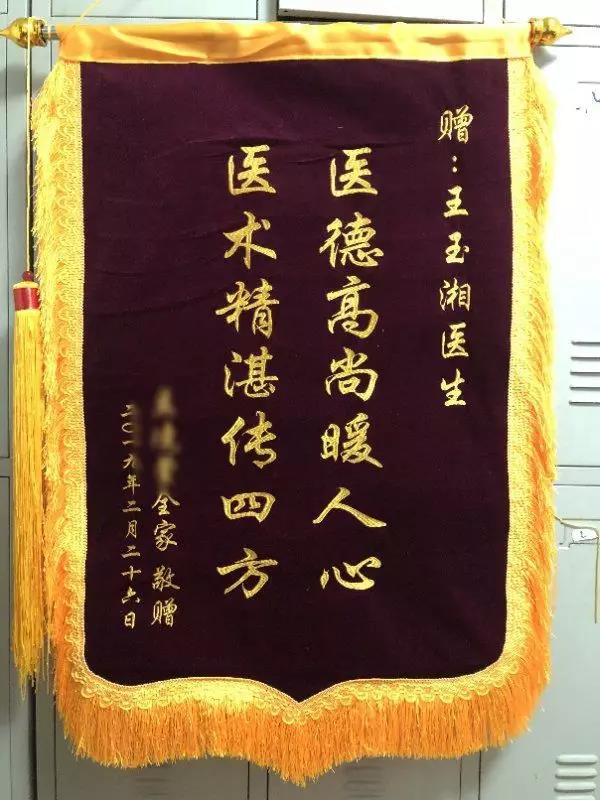 赠：王玉湘医生
医德高尚暖人心
医术精湛传四方
全家 敬赠
二〇一九年二月二十六日